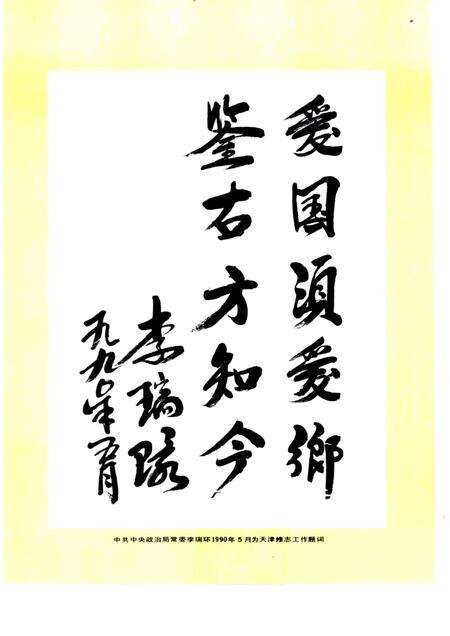 爱国须爱鄉
鉴古方知今
李瑞环
一九九〇年五月
中共中央政治局常委李瑞环1990年5月为天津修志工作题词